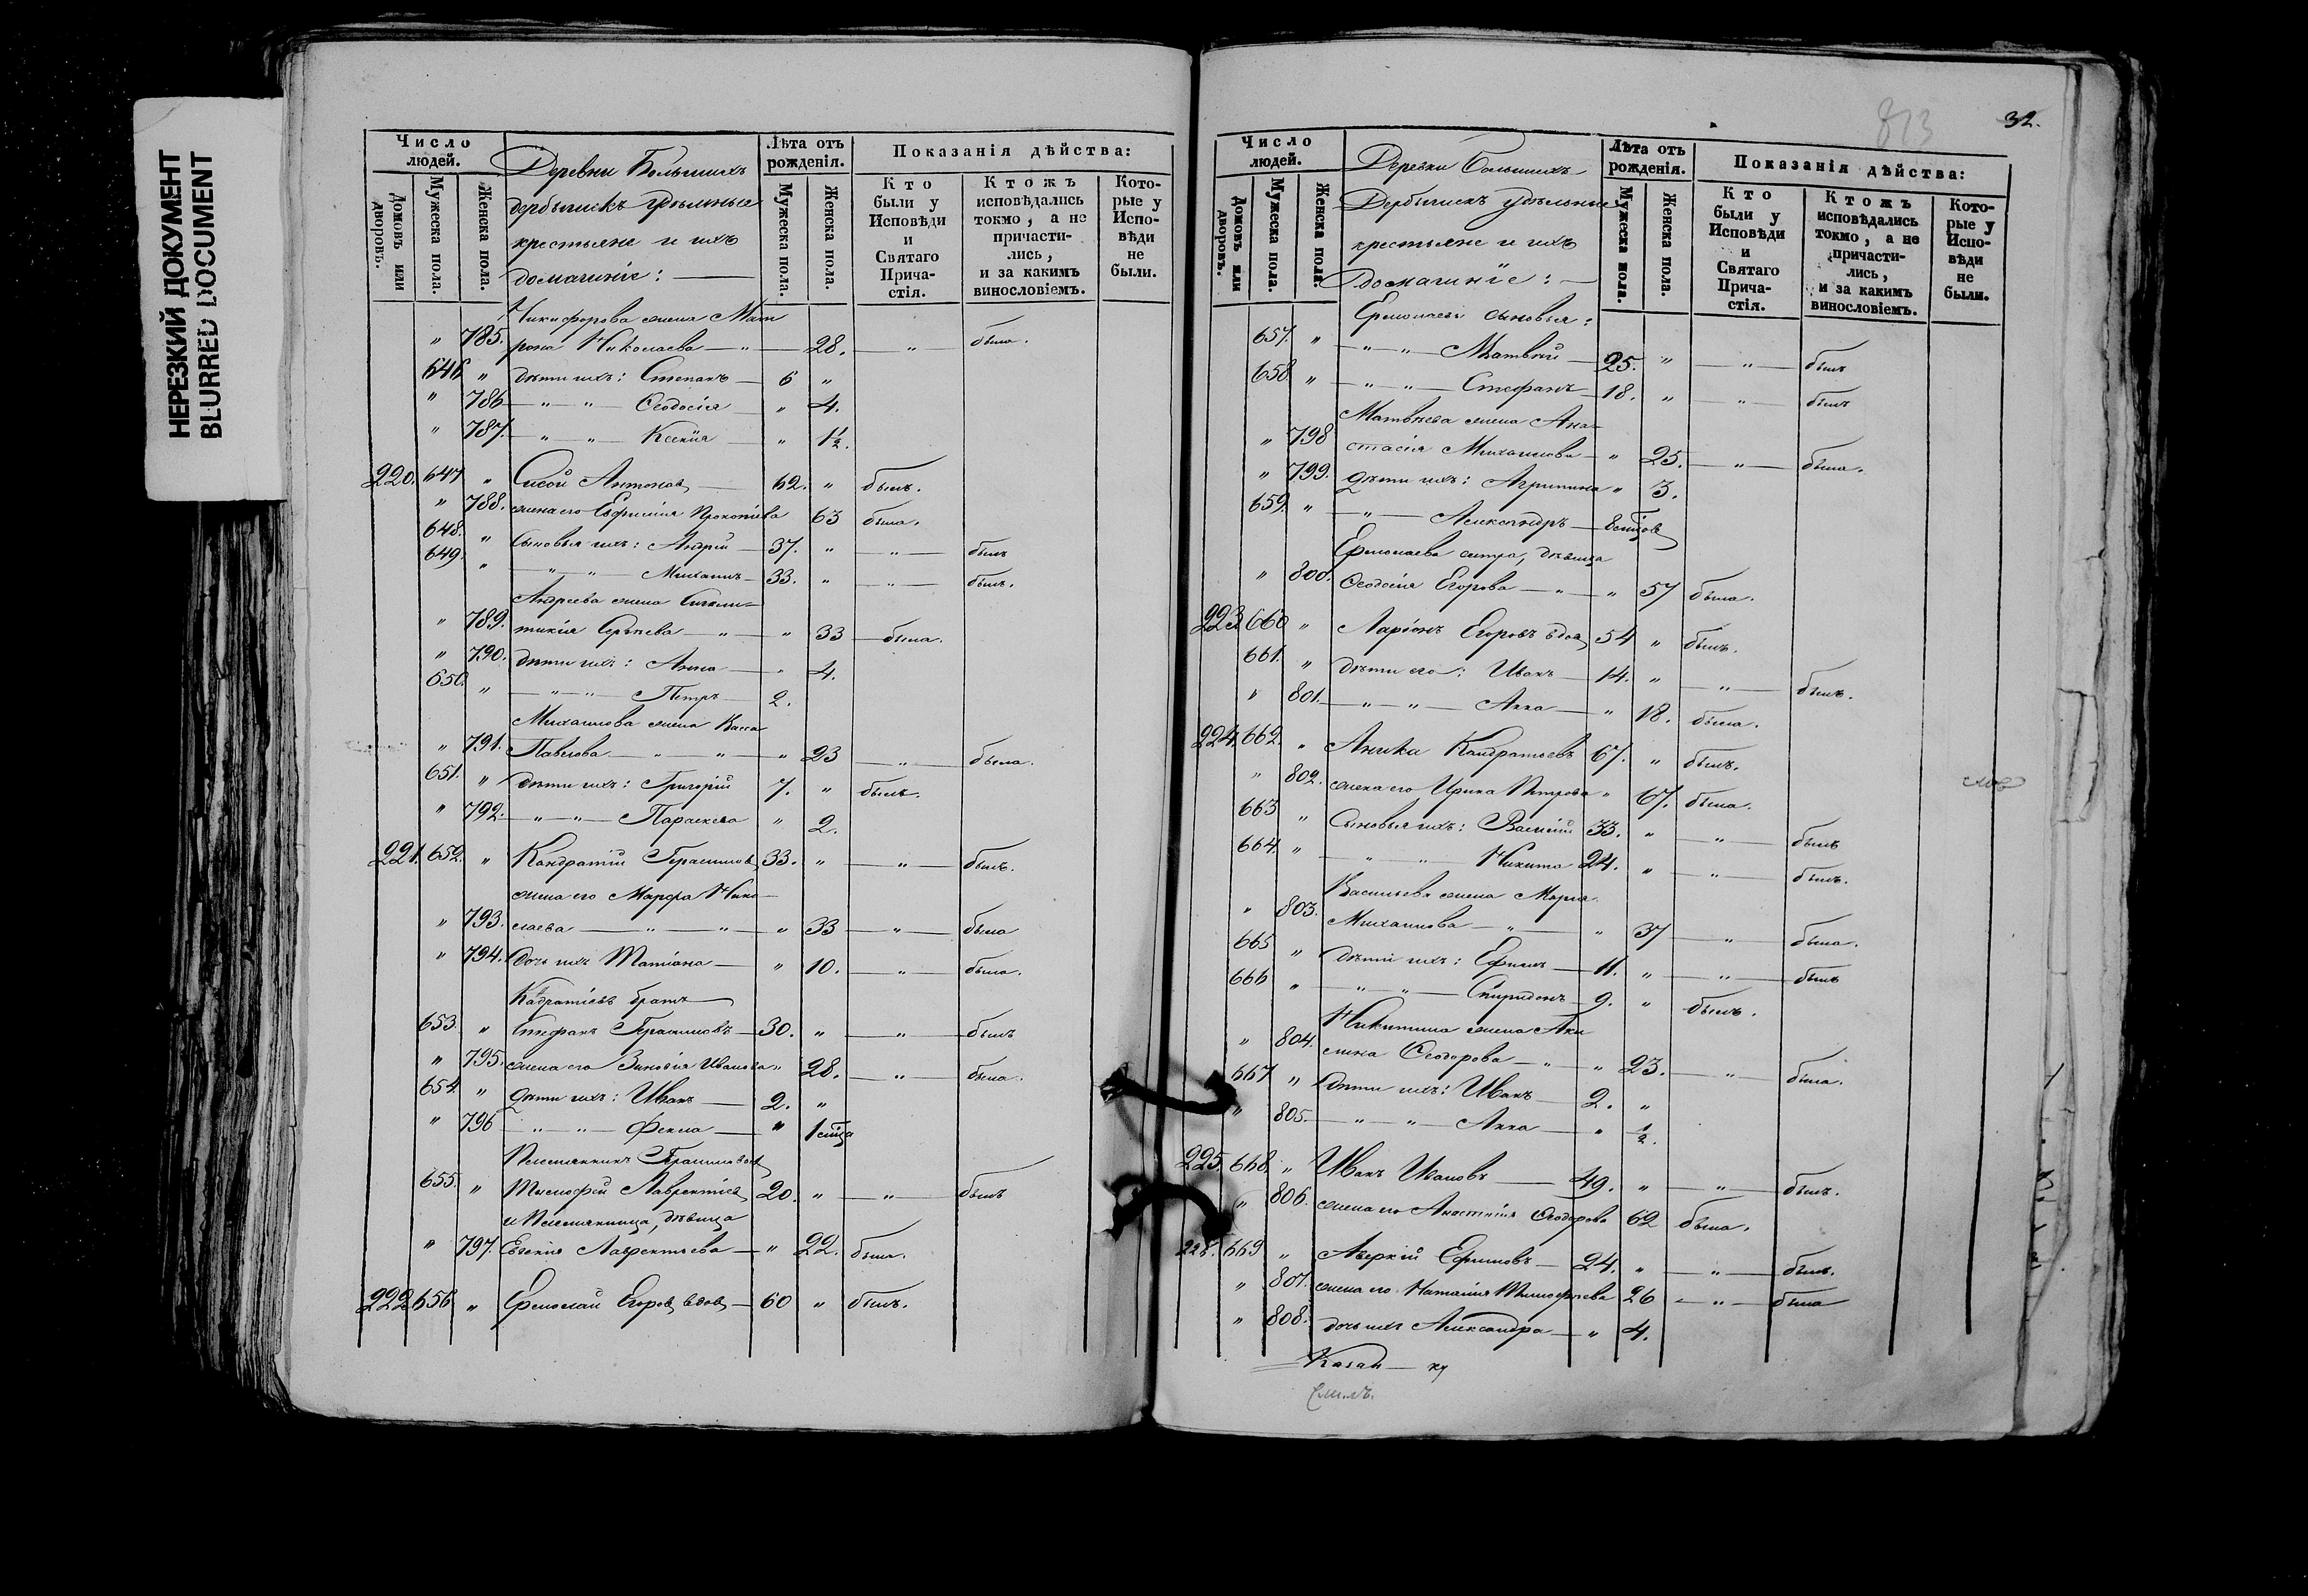 НЕРЕЗКИЙ ДОКУМЕНТ
BLURRED DOCUMENT
Число людей.
Домовъ или дворовъ.
Мужеска пола.
Женска пола.
Деревни Большихъ
Дербышкъ удѣльные
крестьяне и ихъ
домашніе:
Лѣта отъ рожденія.
Мужеска пола.
Женска пола.
Показанія дѣйства:
Кто были у Исповѣди и Святаго Прича-стія.
Ктожъ исповѣдались токмо, а не причасти-лись, и за какимъ винословіемъ.
Кото-рые у Испо-вѣди не были.
Никифорова жена Мат
" 785. рона Николаева — " — 28. — " — была.
646 " дѣти ихъ: Степанъ — 6 "
" 786 — " — " — Ѳеодосія — " 4.
" 787. — " — " — Ксенія — " 1½.
220. 647 " Сисой Антонов — 62. " былъ.
" 788. жена его Евфимія Прокопіева 63 была.
648. " Сыновья ихъ: Андрей — 37. " — " — былъ
649. " — " — " — Михаилъ — 33. " — " — былъ.
Андреева жена Синкли=
" 789. тикія Сергѣева — " — " 33 — была.
" 790. дѣти ихъ: Анна — " 4.
650. " — " — " — Петръ — 2.
Михаилова жена Васса
" 791. Павлова — " — " — " 23 — " — была.
651. " дѣти ихъ: Григорій 7. " былъ.
" 792. — " — " — Параскева " 2.
221. 652. " Кандратій Герасимов 33. " — " — былъ.
жена его Марфа Нико
" 793. лаева — " — " — " 33 — " — была
" 794. дочь ихъ Татіана — " 10. — " — была.
Кадратіевъ братъ
653. " Стефанъ Герасимовъ — 30. " — " — былъ
" 795. жена его Зиновія Иванова " 28. — " — была.
654. " дѣти ихъ: Иванъ — 2. "
" 796 — " — " — Фекла — " 1 сѣца
Племянникъ Герасимовъ
655. " Тимофей Лаврентіев 20. " — " — былъ
и Племянница, дѣвица
" 797. Евгенія Лаврентьева — " 22. была.
222. 656 " Ермолай Егоров вдов — 60 " былъ.
813
32.
Число людей.
Домовъ или дворовъ.
Мужеска пола.
Женска пола.
Деревни Большихъ
Дербышкъ удѣльные
крестьяне и ихъ
домашніе:
Лѣта отъ рожденія.
Мужеска пола.
Женска пола.
Показанія дѣйства:
Кто были у Исповѣди и Святаго Прича-стія.
Ктожъ исповѣдались токмо, а не причасти-лись, и за какимъ винословіемъ.
Кото-рые у Испо-вѣди не были.
Ермолаевы сыновья:
657. " — " — " — Матвѣй — 25. " — " — былъ
658. " — " — " — Стефанъ — 18. " — " — былъ
Матвѣева жена Ана-
" 798 стасія Михаилова — " 25. — " — была.
" 799. дѣти ихъ: Агрипина " 3.
659. " — " — Александръ —
Ермолаева сестра, дѣвица
" 800. Ѳеодосія Егорова — " — " 57 была.
223. 660 " Ларіонъ Егоровъ вдов 54 " былъ.
661. " дѣти его: Иванъ — 14. " — " — былъ.
" 801. — " — " — Анна — " 18. была.
224. 662. " Аника Кандратьевъ 67. " былъ.
" 802. жена его Ирина Петрова " 67. была.
663 " Сыновья ихъ: Василій 33. " — " — былъ
664. " — " — " — Никита 24. " — " — былъ.
Васильева жена Марія
" 803. Михаилова — " — " 37 — " — была.
665 " дѣти ихъ: Ефимъ — 11. " — " — былъ
666 " — " — " — Спиридонъ — 9. " былъ.
Никитина жена Аку
" 804. лина Ѳеодорова — " — " 23. — " — была.
667 " дѣти ихъ: Иванъ — 2. "
" 805. — " — " — Анна — " ½.
225. 668. " Иванъ Ивановъ — 49. " — " — былъ.
" 806. жена его Анастасія Ѳеодорова 62 была.
226. 669 " Аверкій Ефимовъ — 24. " — " — былъ.
" 807. жена его Наталія Тимофѣева 26 — " — была
" 808. дочь ихъ Александра — " 4.